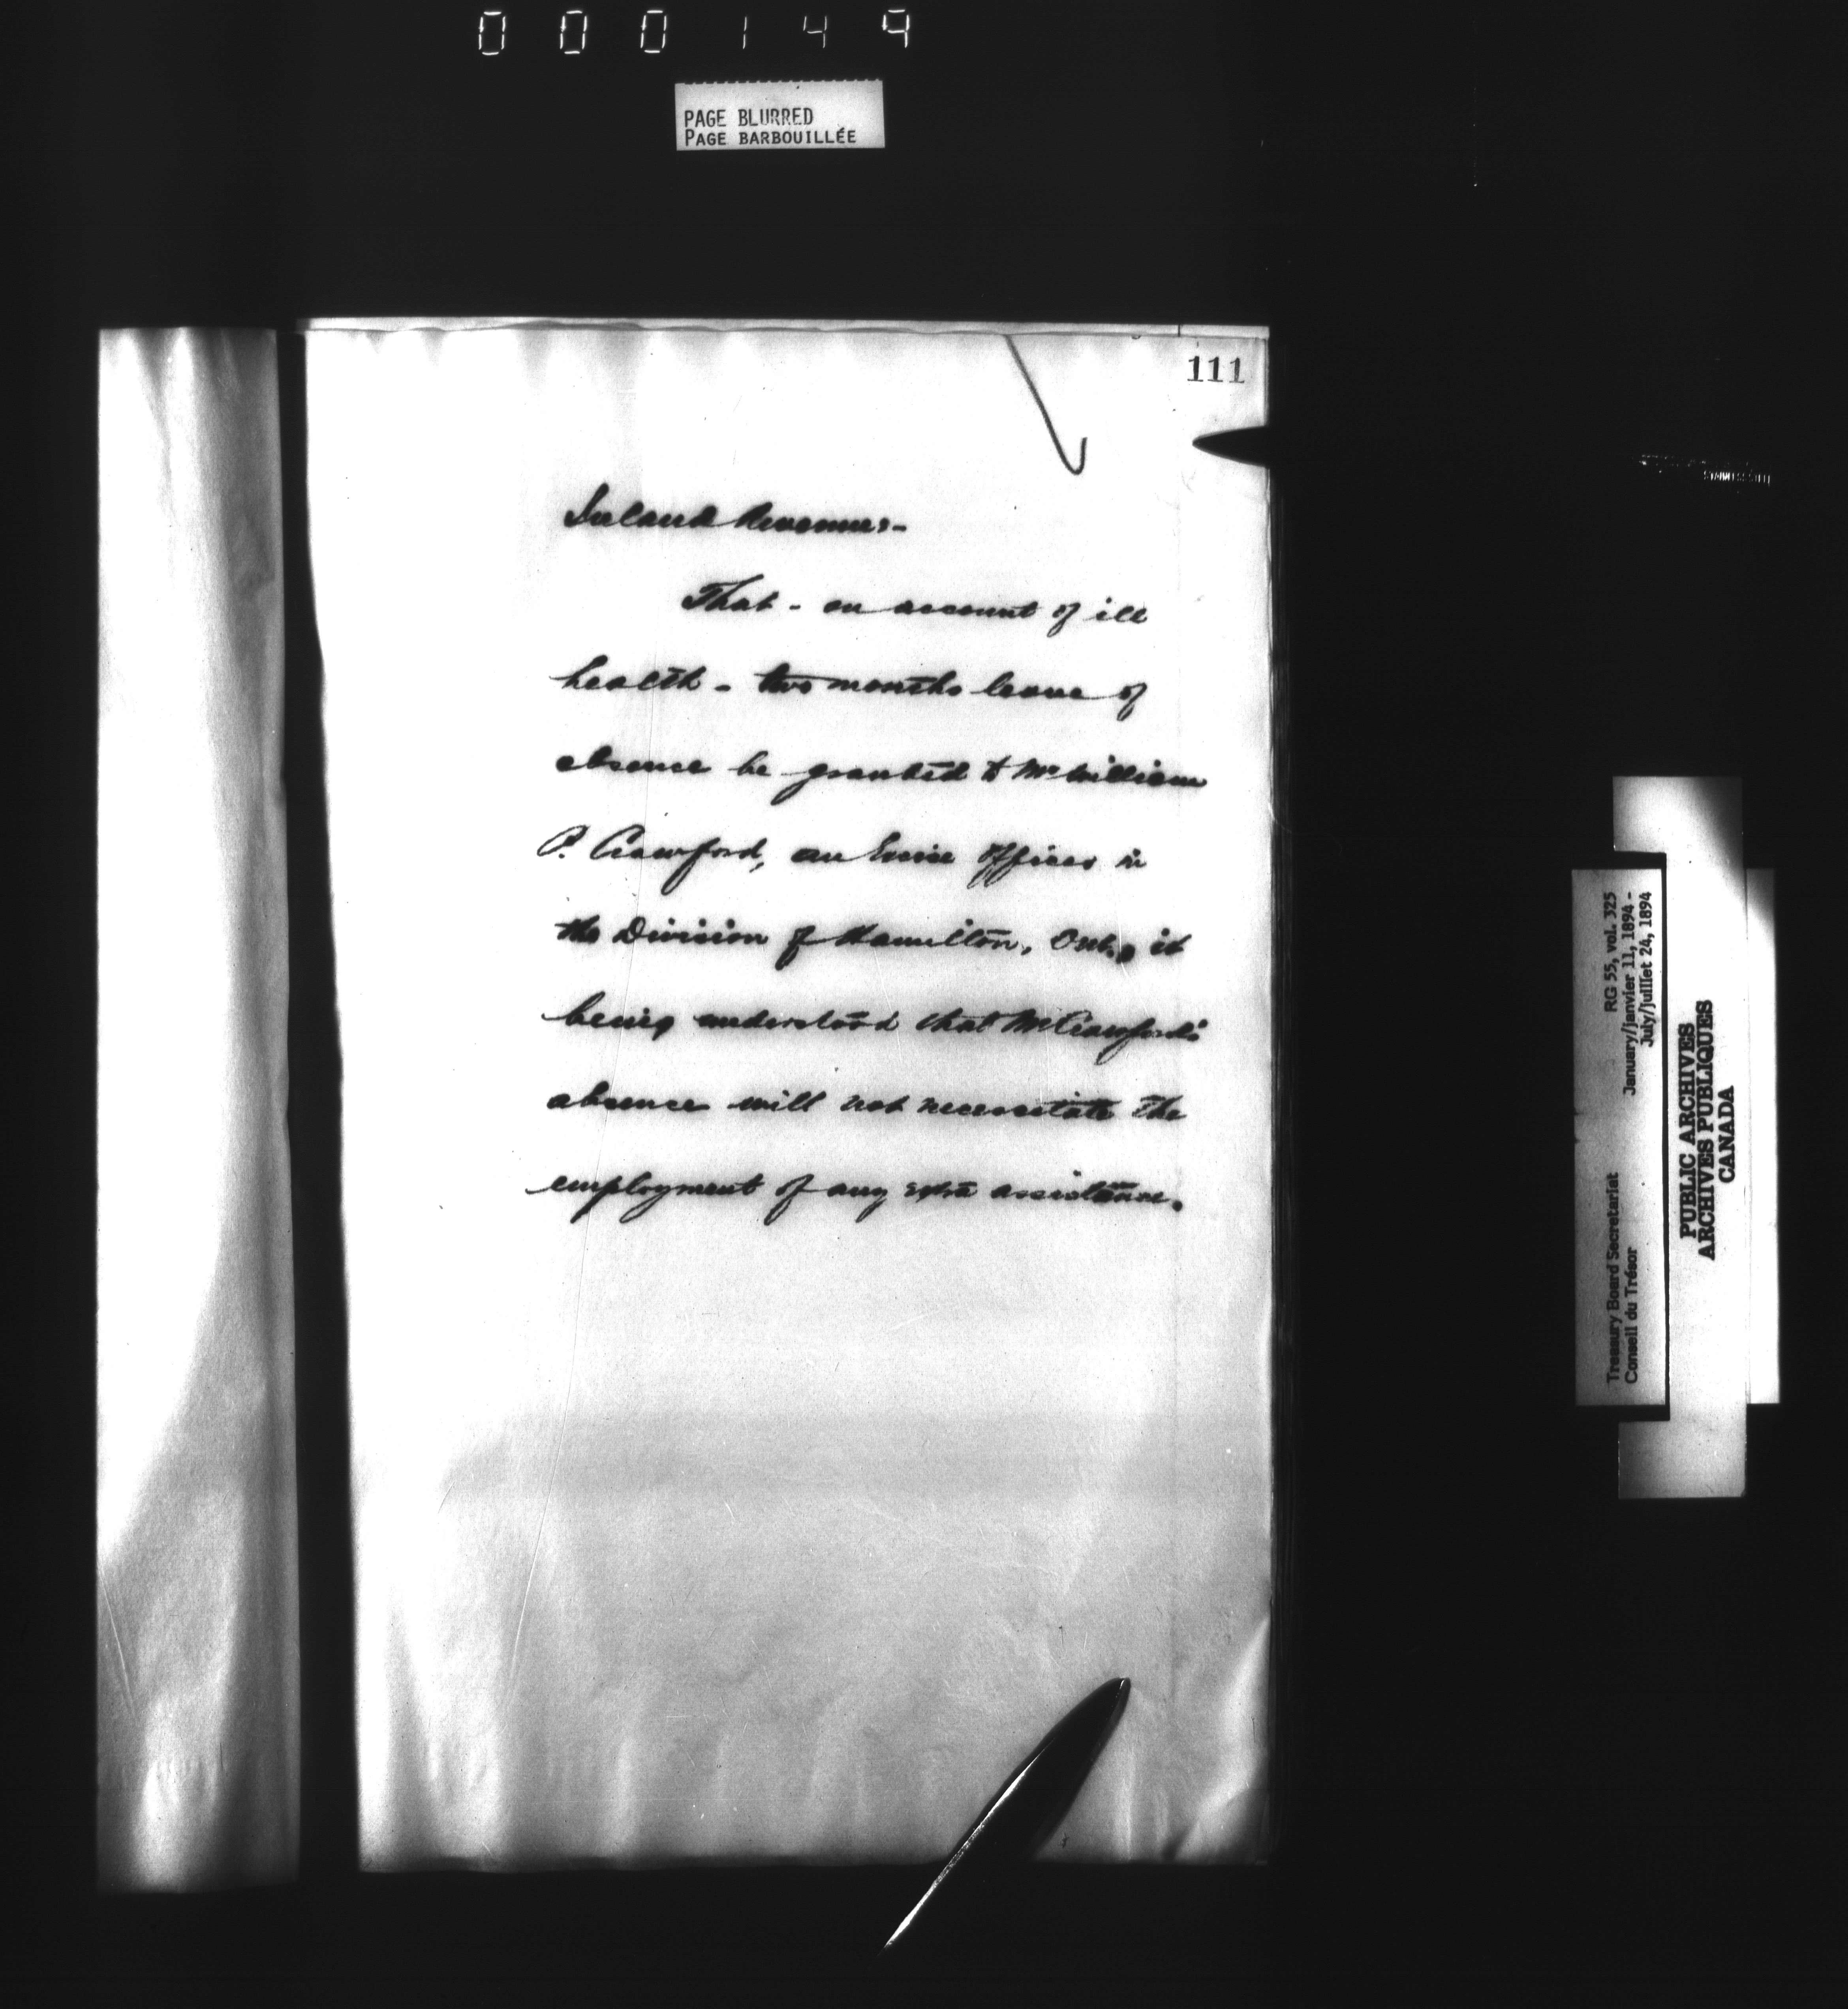 000149
PAGE BLURRED
PAGE BARBOUILLÉE
111
Inland Revenue:-
That - on account of ill
health - two months leave of
absence be granted to Mr William
P. Crawford, an Excise Officer in
the Division of Hamilton, Ont., it
being understood that Mr Crawford's
absence will not necessitate the
employment of any extra assistance.
Treasury Board Secretariat RG 55, vol. 325
Conseil du Trésor January/janvier 11, 1894 -
July/juillet 24, 1894
PUBLIC ARCHIVES
ARCHIVES PUBLIQUES
CANADA